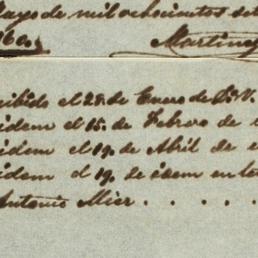 Mayo de mil ochocientos
Martinez
cibido el 28. de Enero de
idem el 15. de Febrero de
idem el 19. de Abril de
idem el 19. de idem en
Antonio Mier . . . . .